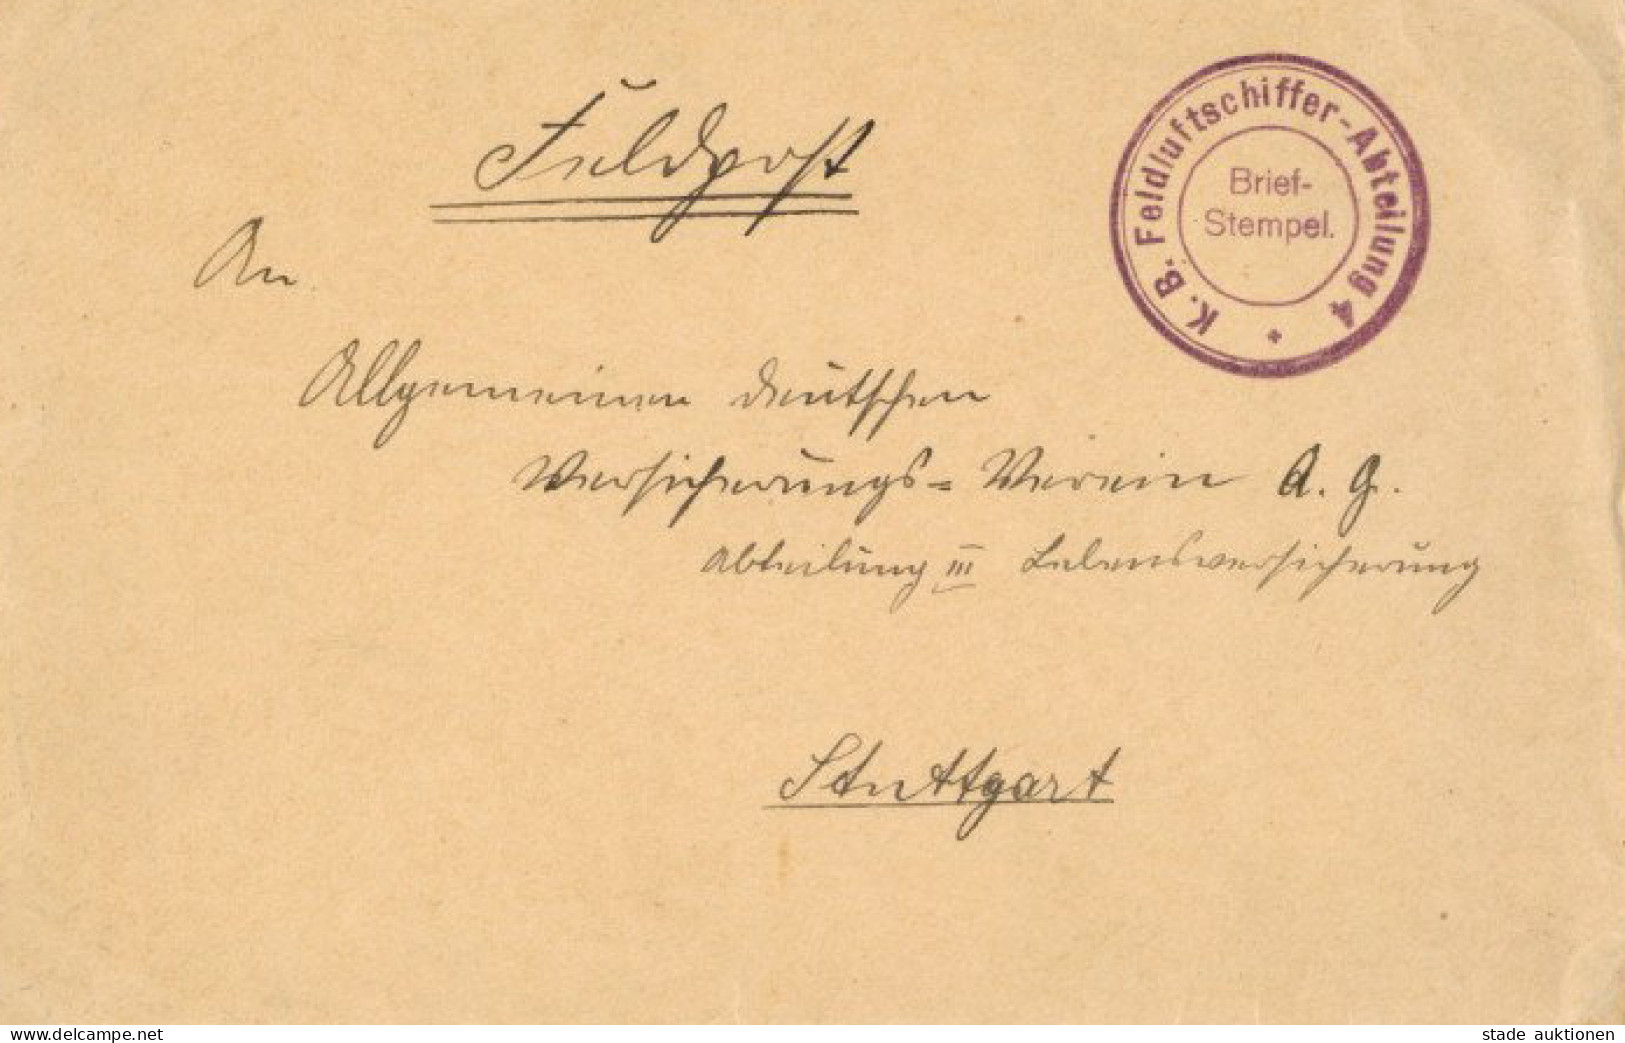 Feldpost
K. B. Feldluftschiffer-Abteilung 4 *
Brief-
Stempel.
An
Allgemeinen deutschen
Versicherungs= Verein A. G.
Abteilung III Lebensversicherung
Stuttgart
www.delcampe.net
stade auktionen